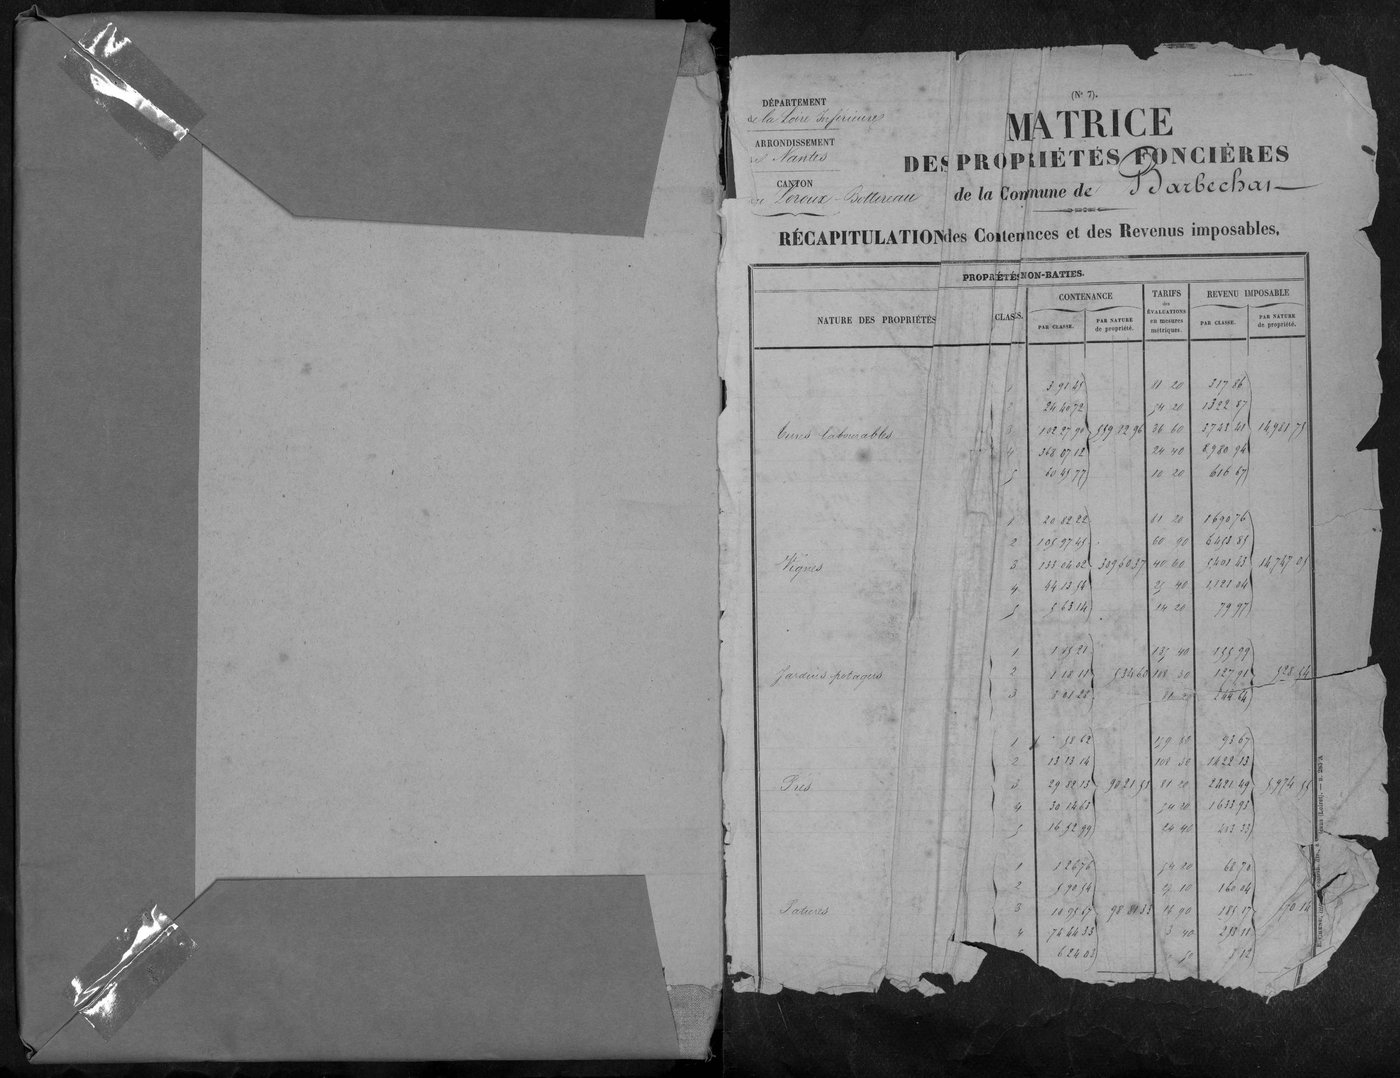 (N° 7).
DÉPARTEMENT
de la Loire Inférieure
ARRONDISSEMENT
de Nantes
CANTON
du Loroux-Bottereau
MATRICE
DES PROPRIÉTÉS FONCIÈRES
de la Commune de Barbechat
RÉCAPITULATION des Contenances et des Revenus imposables,
PROPRIÉTÉS NON-BATIES.
NATURE DES PROPRIÉTÉS
CLASSES.
CONTENANCE
PAR CLASSE.
PAR NATURE
de propriété.
TARIFS
des
ÉVALUATIONS
en mesures
métriques.
REVENU IMPOSABLE
PAR CLASSE.
PAR NATURE
de propriété.
1 3 91 45 81 20 317 86
2 24 40 72 54 20 1322 87
Terres labourables 3 102 27 90 559 12 96 36 60 3743 41 14981 75
4 368 07 12 24 40 8980 94
5 60 45 77 10 20 616 67
1 20 82 22 81 20 1690 76
2 105 97 45 60 90 6453 85
Vignes 3 133 04 02 309 60 37 40 60 5401 43 14747 05
4 44 13 54 25 40 1121 04
5 5 63 14 14 20 79 97
1 1 15 21 135 40 155 99
Jardins potagers 2 1 18 11 5 34 60 108 30 127 91 528 54
3 3 01 28 81 20 244 64
1 58 62 159 80 93 67
2 13 13 14 108 30 1422 13
Prés 3 29 82 13 90 21 51 81 20 2421 49 5974 55
4 30 14 63 54 20 1633 93
5 16 52 99 24 40 403 33
1 1 26 76 54 20 68 70
2 5 90 54 27 10 160 04
Patures 3 10 95 67 98 81 32 16 90 185 17
4 74 44 33 3 40 253 11
6 24 02 50 3 12